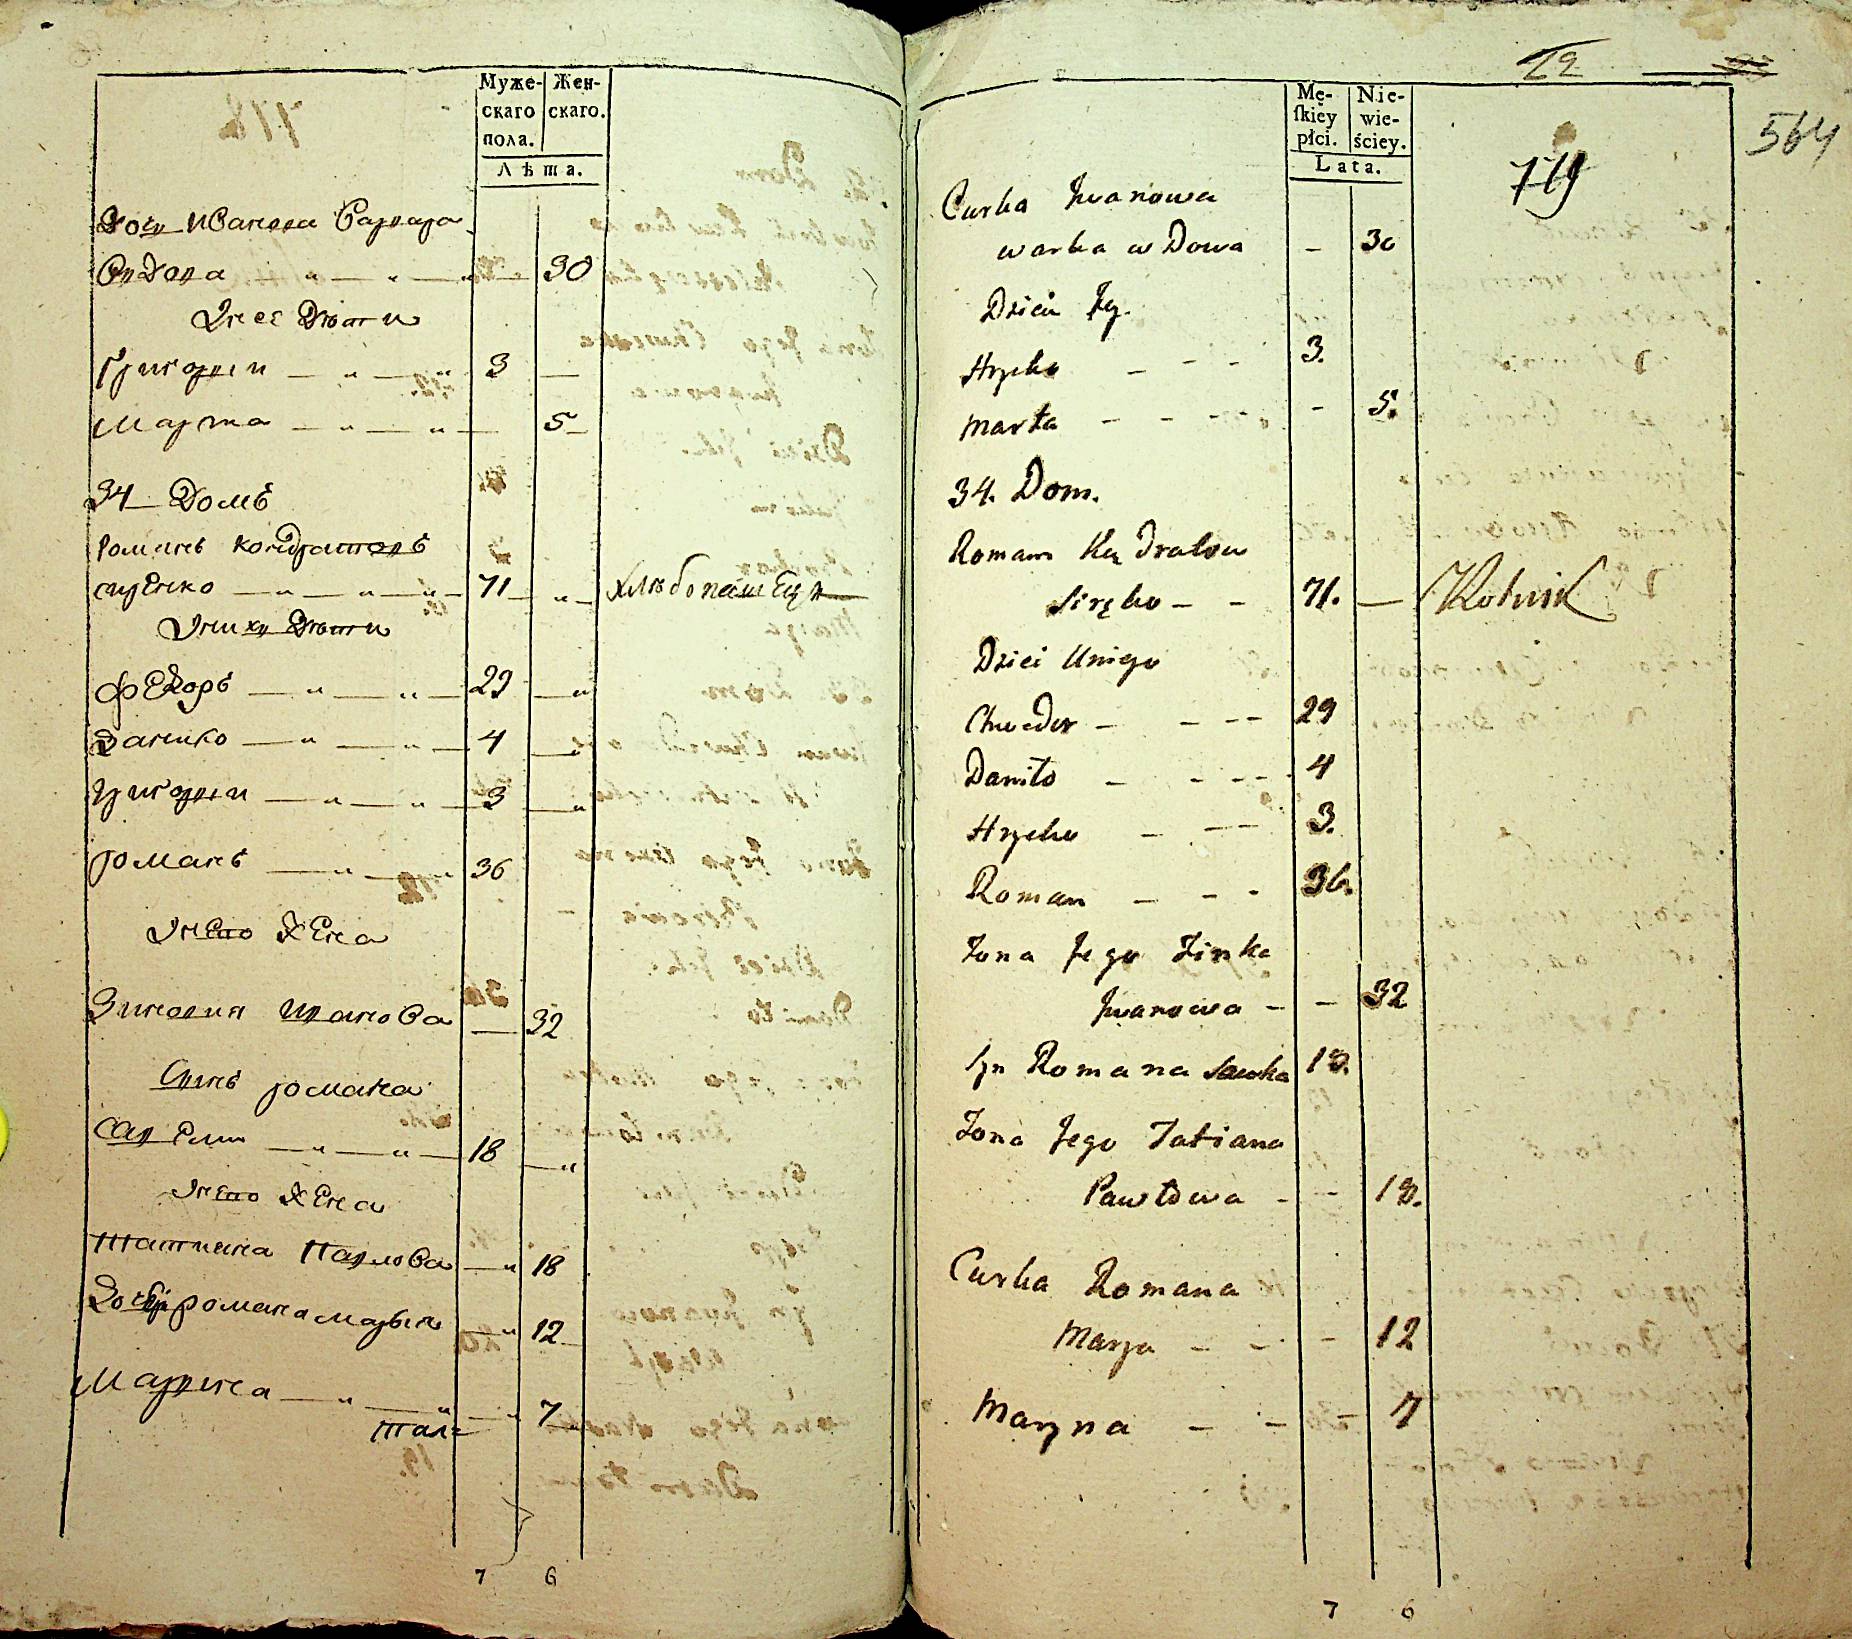 Муже-
скаго
пола.
Жен-
скаго.
Лѣта.
Дочь Иванова Варвара
Вдова 30
У нее Дѣти
Григореи 3
Марта 5
34 Домъ
Романъ Кондратовъ
сиренко 71 хлѣбопашец
У них Дѣти
Федоръ 29
Данило 4
Григореи 3
романъ 36
У него Жена
Зиновия Иванова 32
Сынъ романа
Савелии 18
У него Жена
Татиана Павлова 18
Дочерь романа марья 12
Марина 7
тал=
7 6
22
564
719
Mę-
skiey
płci.
Nie-
wie-
ściey.
Lata.
Curka Jwanowa
warka wDowa 30
Dzieci Jey.
Hryćko 3.
Marta 5.
34. Dom.
Roman Kądratow
Siręko 71. Rolnik
Dzieci Uniego
Chwedor 29
Daniło 4
Hryćko 3.
Roman 36.
Żona Jego Zinka
Jwanowa 32
Syn Romana Sawka 18.
Żona Jego Tatiana
Pawłowa 18.
Curka Romana
Marya 12
Maryna 7
7 6